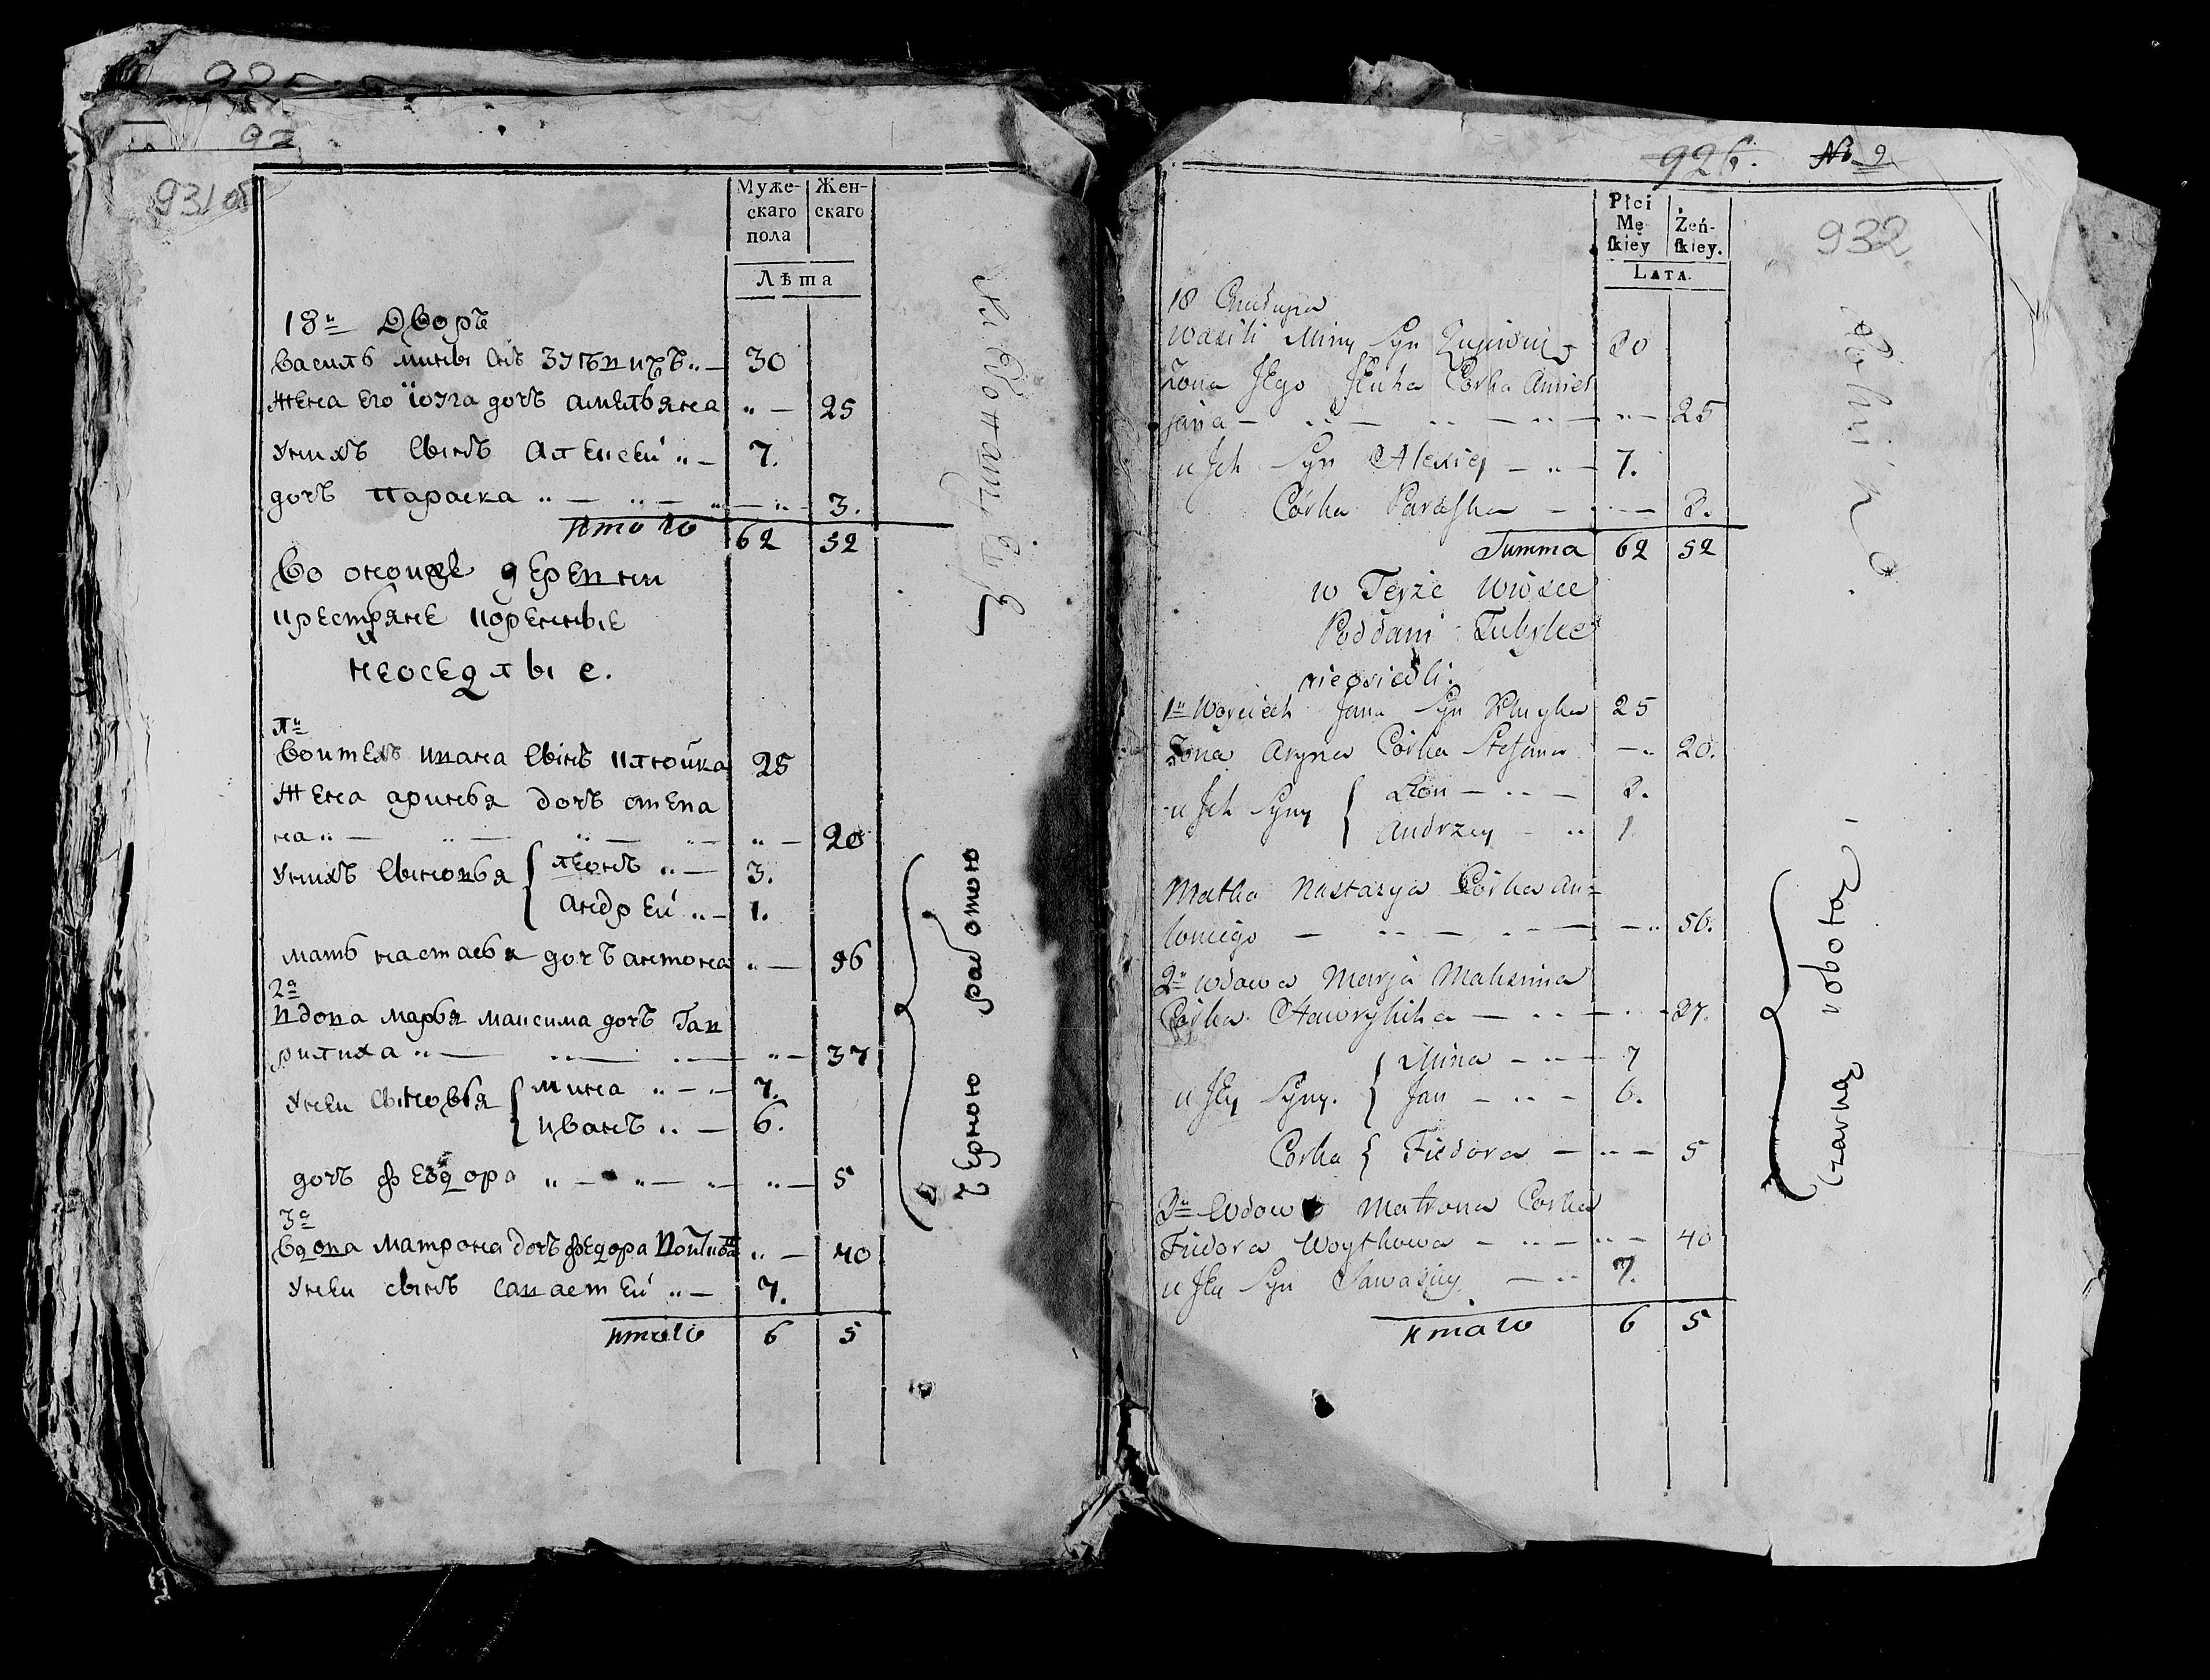 92
93/об
Муже-
скаго
пола
Жен-
скаго
Лѣта
18й Дворъ
василь мины снъ 30
жена его югга дочь амельяна 25
унихъ сынъ алексей 7.
дочь параска 3.
итого 62 52
во оной же деревни
крестяне коренные
неоседлые.
1й
воитехъ ивана сынъ клюйка 25
жена аринья дочь степа
на 20
унихъ сыновья
леонъ 3.
андрей 1.
мать настасья дочь антона 56
2я
вдова марья максима дочь гав
рилиха 37
унеи сыновья
мина 7.
иванъ 6.
дочь феодора 5
3я
вдова матрона дочь федора 40
унеи сынъ савастей 7.
итого 6 5
черною работою
926. № 9
932
Płci
Mę
ſkiey
Żeń-
ſkiey.
LATA.
18
Wasili Miny Syn 30
Żona Jego Córka Amiel
jana 25
u Jch Syn Alexiey 7.
Córka Paraſka 3.
Summa 62 52
w Teyże wiosce
Poddani Tubylce
nieosiedli.
1 Woyciech Jana Syn 25
Żona Aryna Córka Stefana 20.
u Jch Syny
Leon 3.
Andrzey 1
Matka Nastazya Córka An-
toniego 56.
2 wdowa Marja Maksima
Córka Hawrylicha 37.
u Jey Syny.
Mina 7
Jan 6.
Corka Fiedora 5
3 Wdowa Matrona Corka
Fiedora Woytkowa 40
u Jey Syn Sawasciey 7.
итого 6 5
Czarną robotą